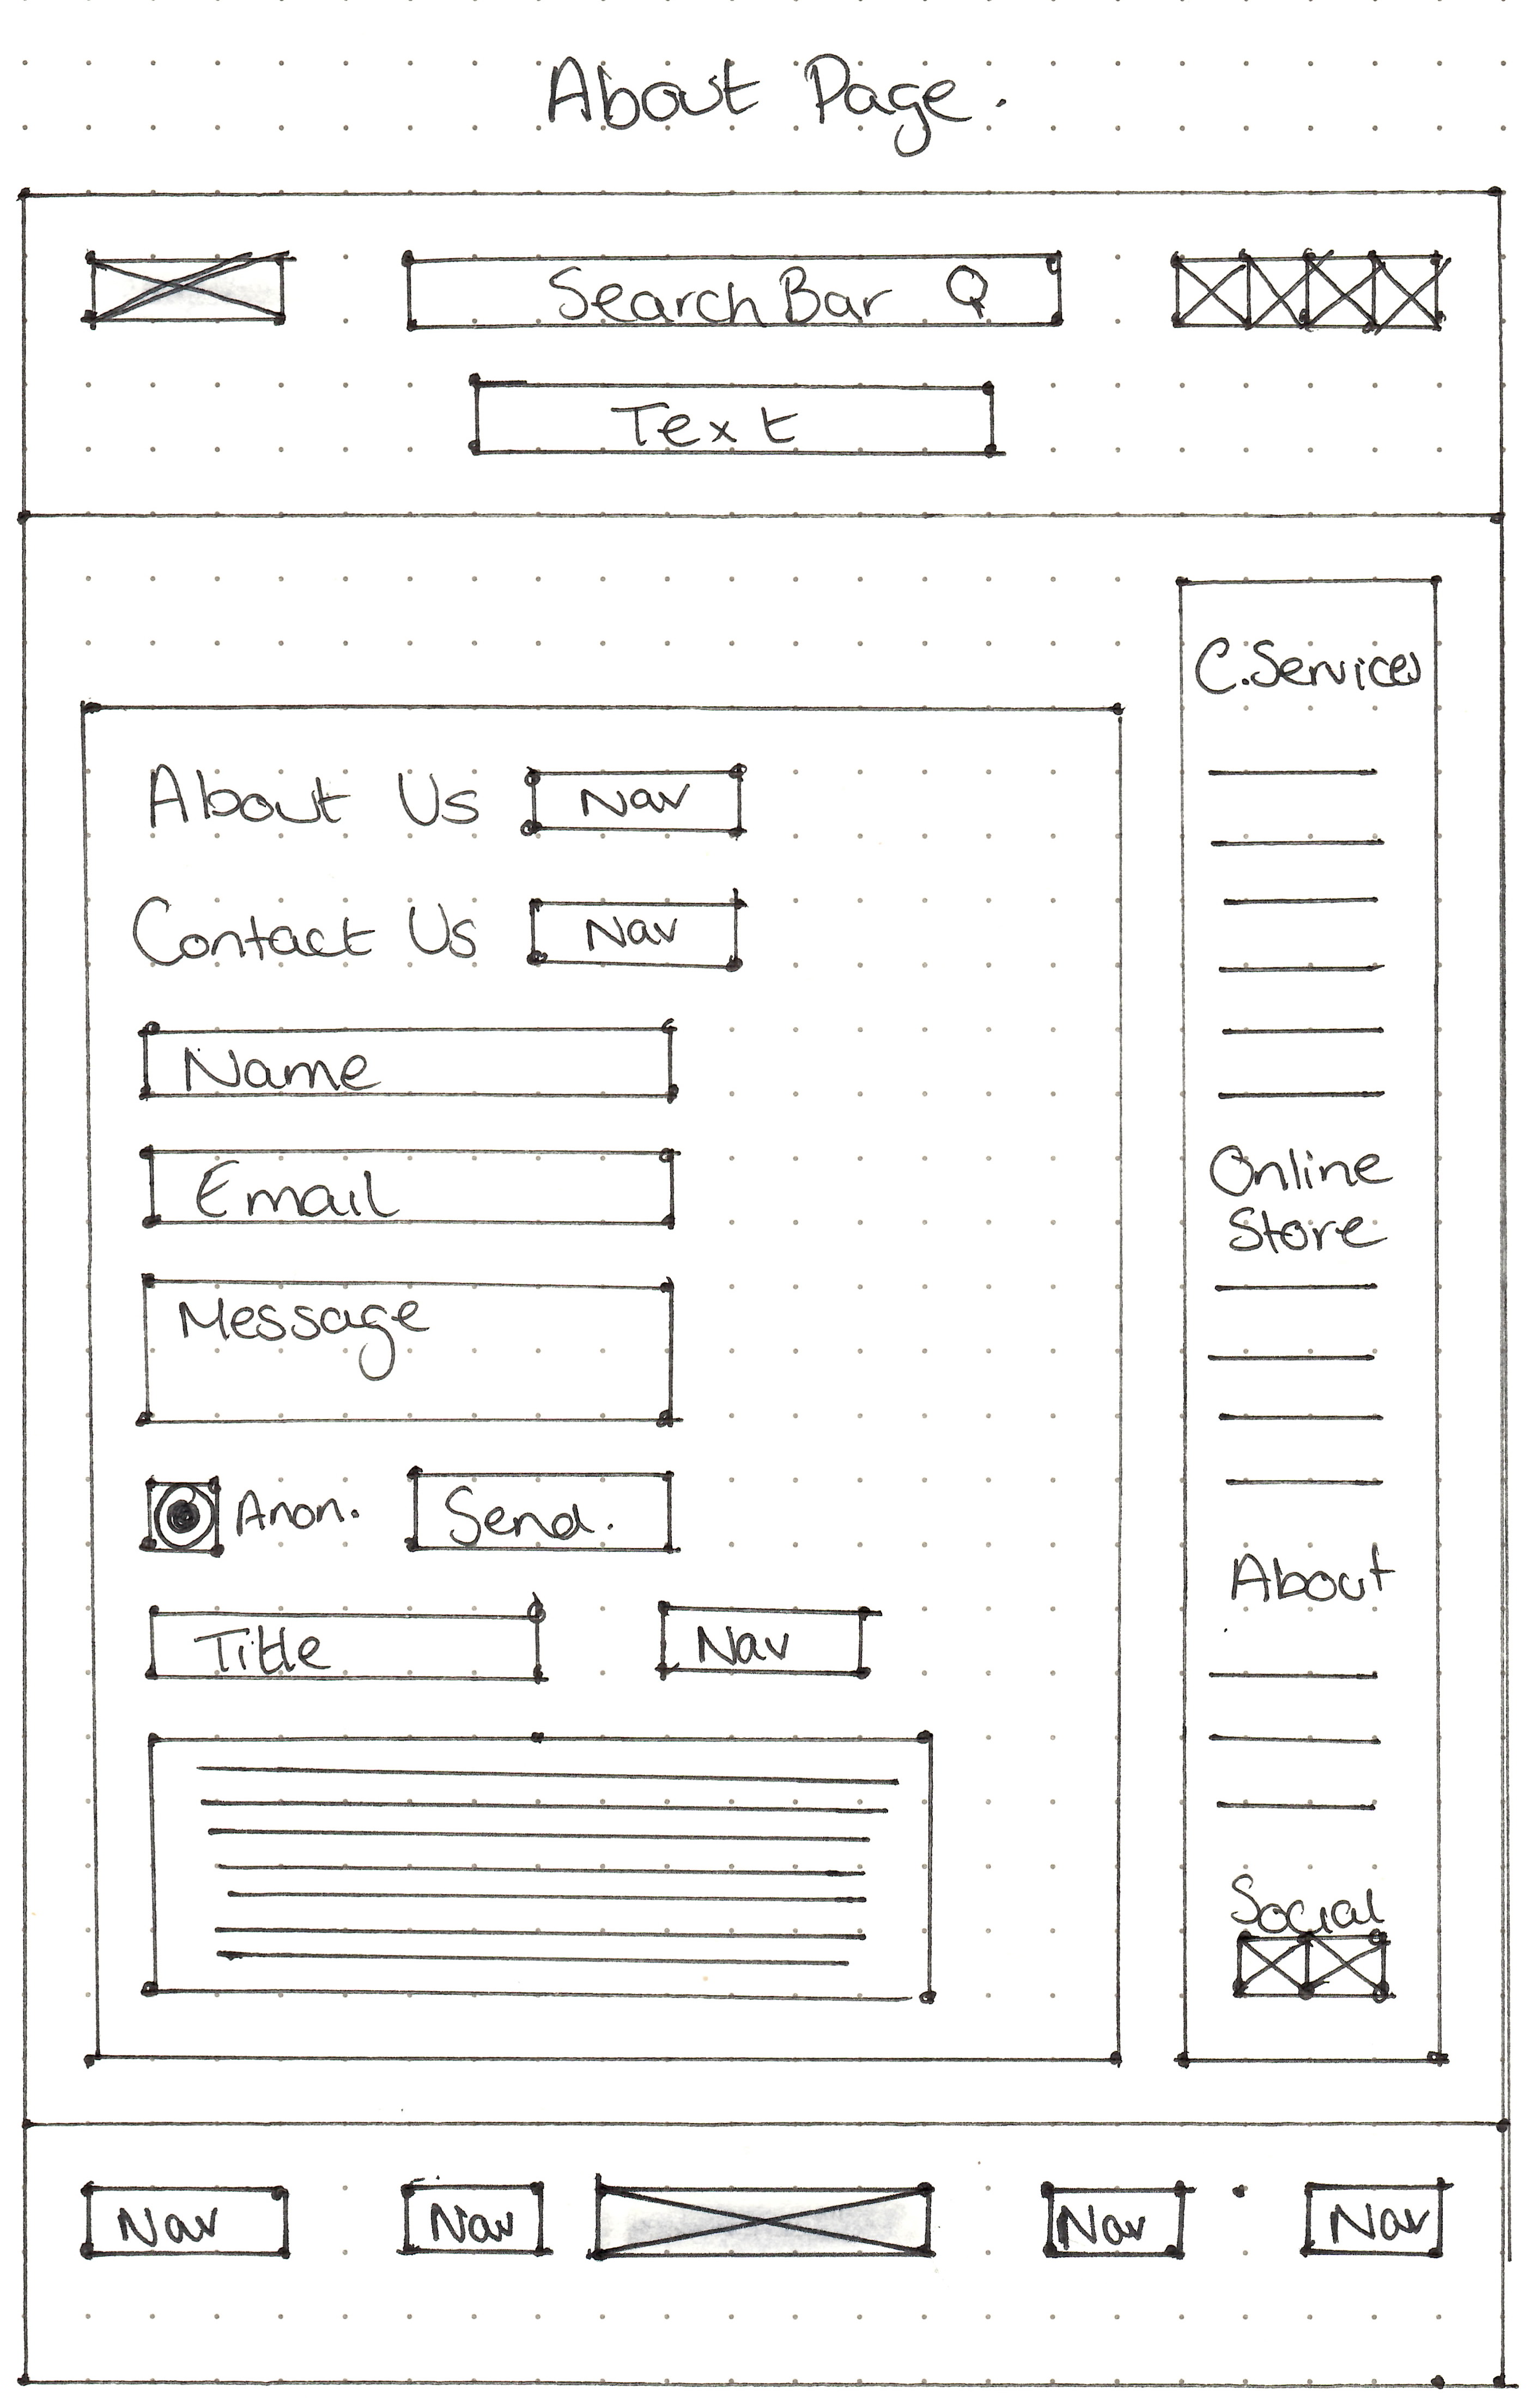 About Page.
Search Bar
Text
About Us Nav
Contact Us Nav
Name
Email
Message
Anon. Send.
Title Nav
C.Services
Online
Store
About
Social
Nav Nav Nav Nav